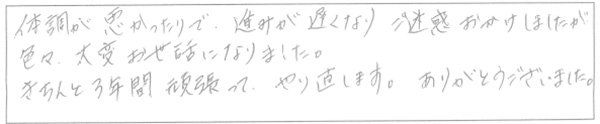 体調が悪かったりで、進みが遅くなりご迷惑おかけしましたが
色々、大変お世話になりました。
きちんと3年間頑張って、やり直します。ありがとうございました。